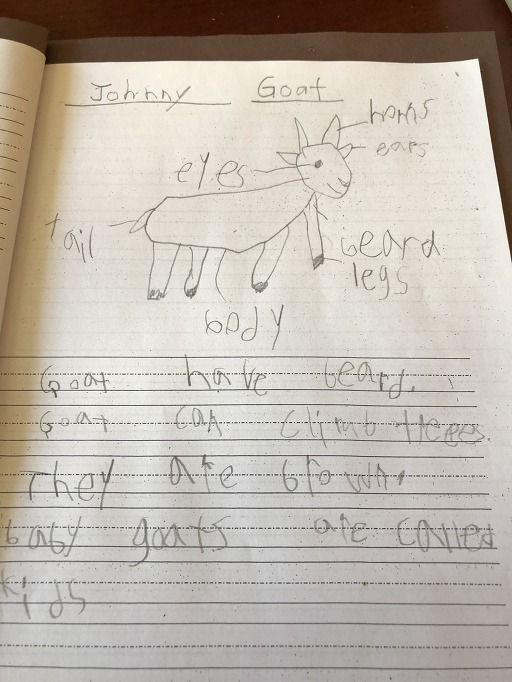 Johnny Goat
horns
ears
eyes
tail
beard
legs
body
Goat have beard.
Goat can climb trees.
They are brown.
baby goats are called
kids